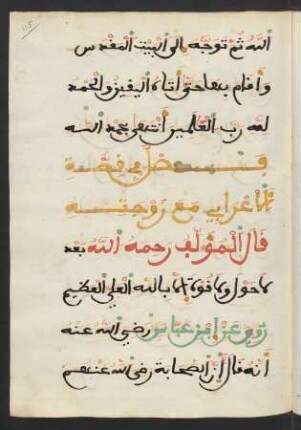 115
الله ثم توجه الى البيت المقدس
واقام بها حتى اتاه اليقين والحمد
لله رب العالمين انتهى بحمد الله
فصل في قصة
الاعرابي مع زوجته
قال المؤلف رحمه الله بعد
لا حول ولا قوة الا بالله العلي العظيم
روي عن ابن عباس رضي الله عنه
انه قال ان الصحابة رضي الله عنهم